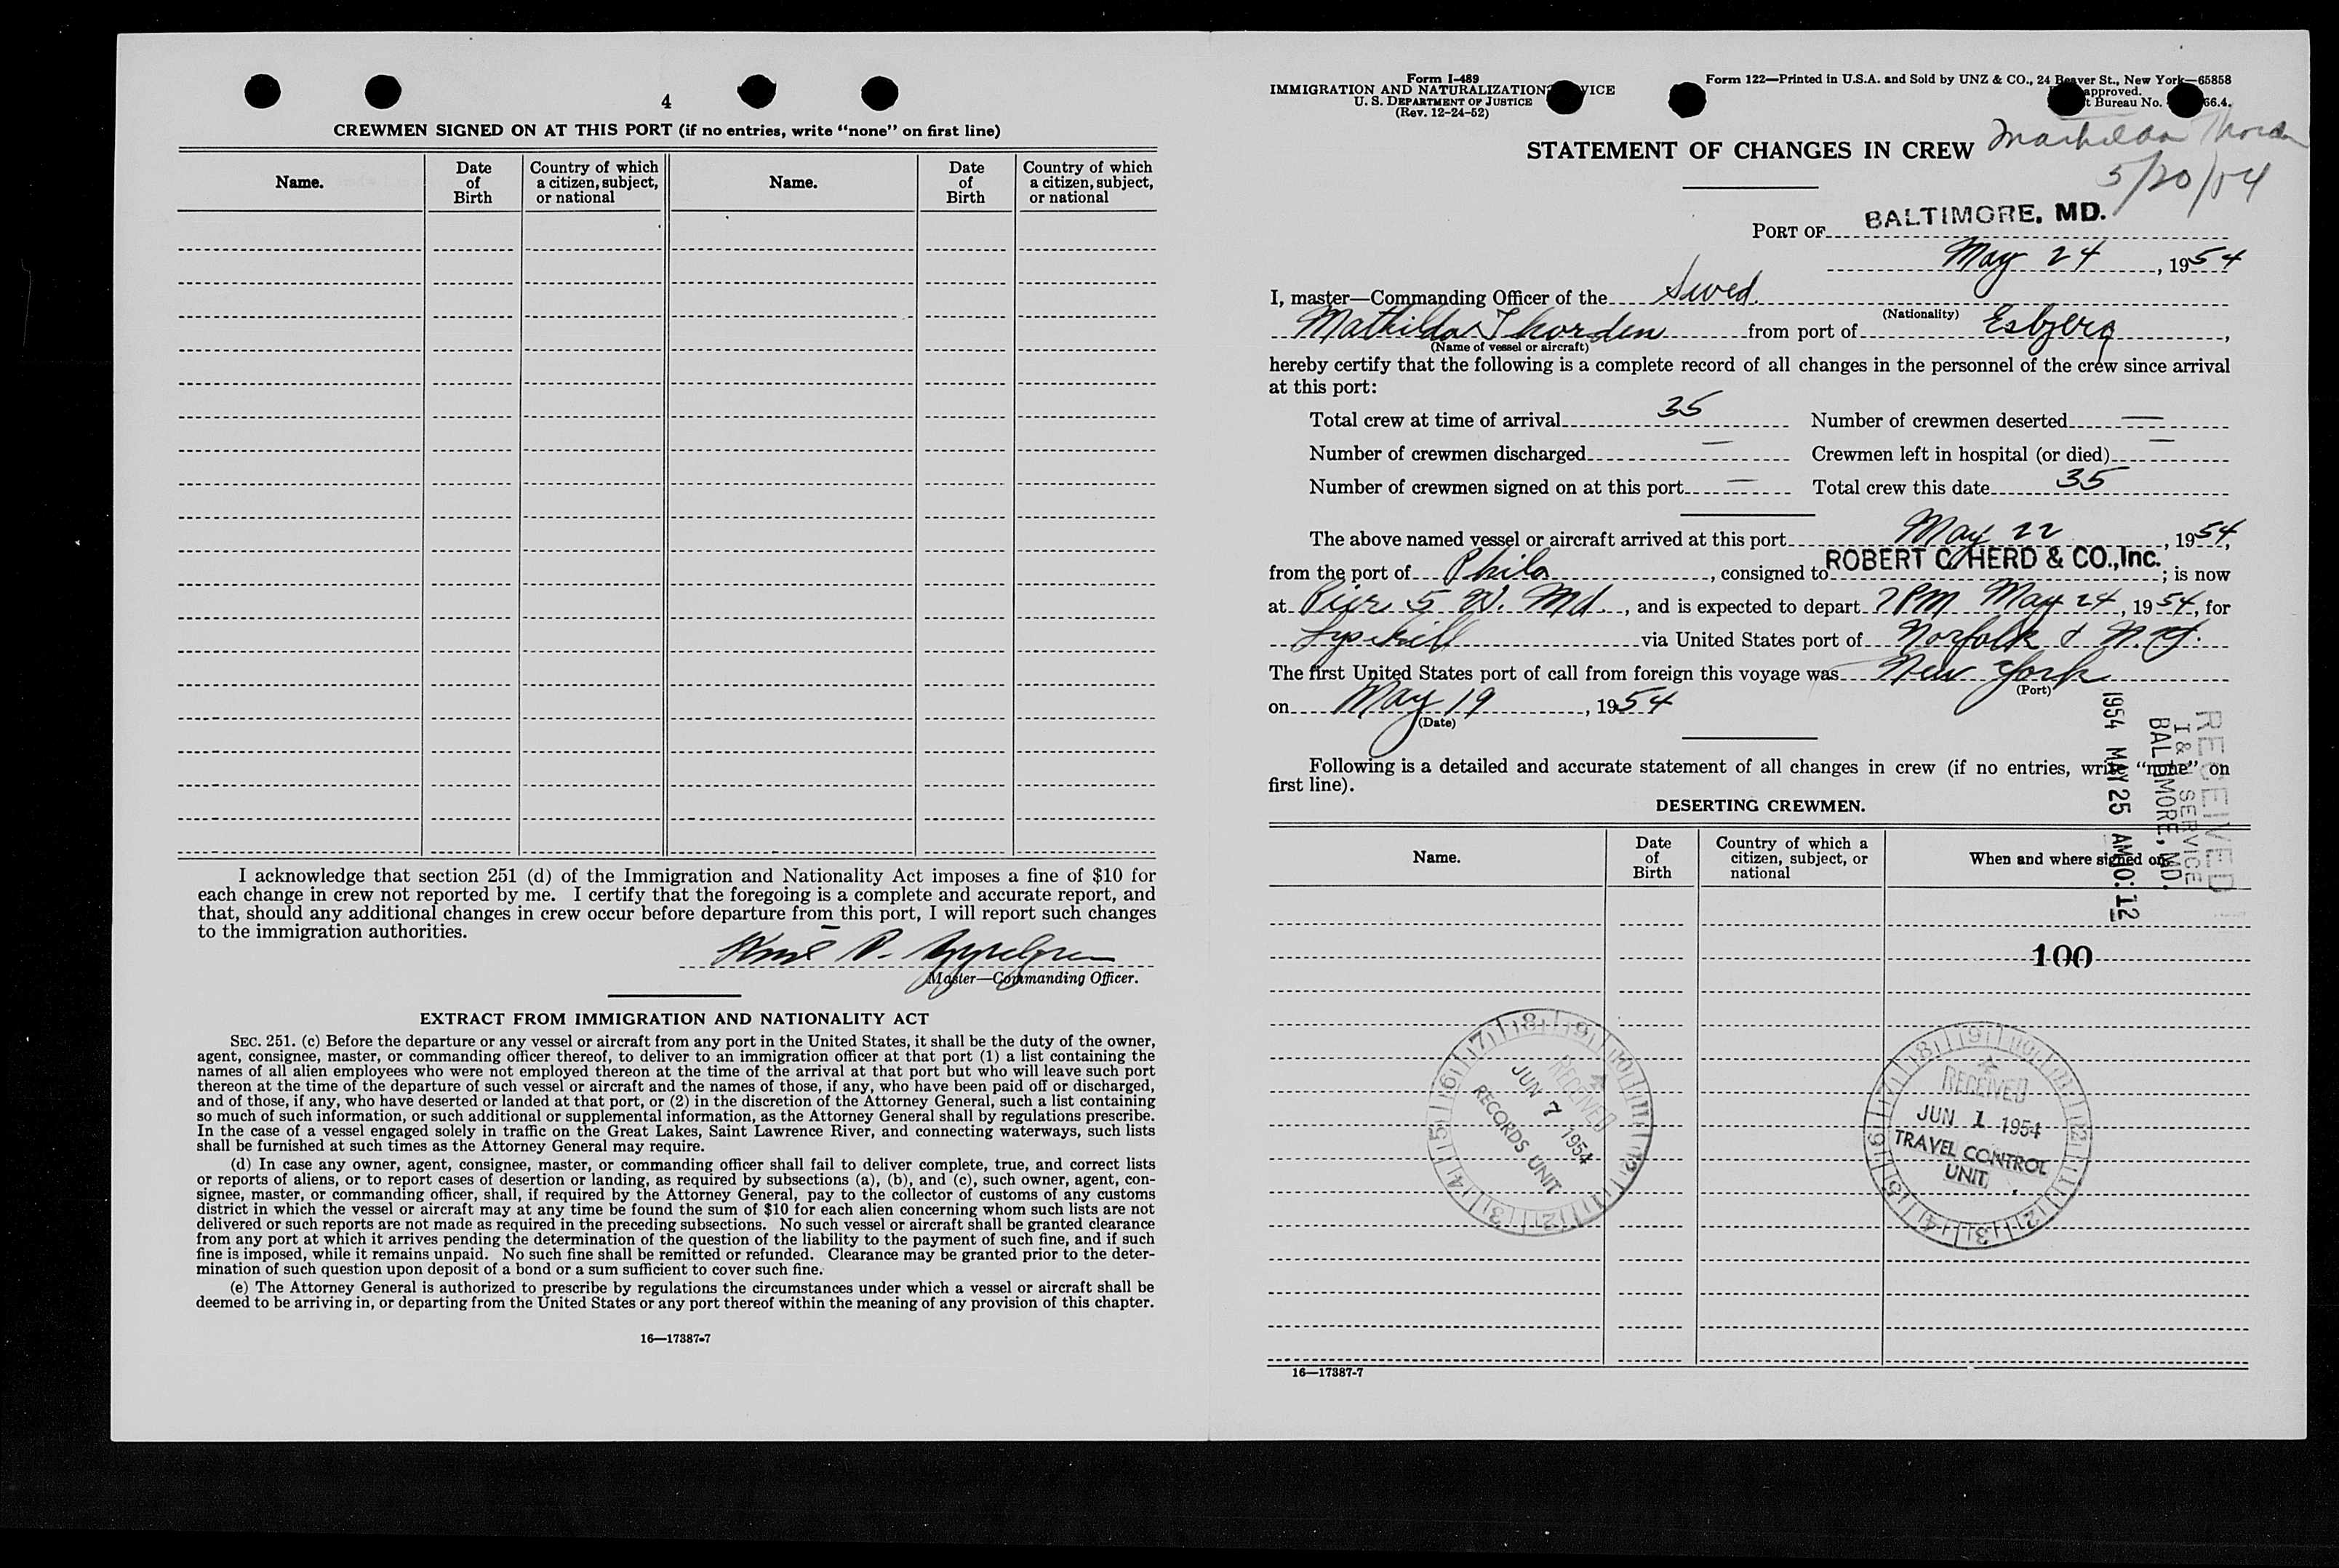 4
CREWMEN SIGNED ON AT THIS PORT (if no entries, write “none” on first line)
Name.
Date
of
Birth
Country of which
a citizen, subject,
or national
Name.
Date
of
Birth
Country of which
a citizen, subject,
or national
I acknowledge that section 251 (d) of the Immigration and Nationality Act imposes a fine of $10 for
each change in crew not reported by me. I certify that the foregoing is a complete and accurate report, and
that, should any additional changes in crew occur before departure from this port, I will report such changes
to the immigration authorities.
Master—Commanding Officer.
EXTRACT FROM IMMIGRATION AND NATIONALITY ACT
SEC. 251. (c) Before the departure or any vessel or aircraft from any port in the United States, it shall be the duty of the owner,
agent, consignee, master, or commanding officer thereof, to deliver to an immigration officer at that port (1) a list containing the
names of all alien employees who were not employed thereon at the time of the arrival at that port but who will leave such port
thereon at the time of the departure of such vessel or aircraft and the names of those, if any, who have been paid off or discharged,
and of those, if any, who have deserted or landed at that port, or (2) in the discretion of the Attorney General, such a list containing
so much of such information, or such additional or supplemental information, as the Attorney General shall by regulations prescribe.
In the case of a vessel engaged solely in traffic on the Great Lakes, Saint Lawrence River, and connecting waterways, such lists
shall be furnished at such times as the Attorney General may require.
(d) In case any owner, agent, consignee, master, or commanding officer shall fail to deliver complete, true, and correct lists
or reports of aliens, or to report cases of desertion or landing, as required by subsections (a), (b), and (c), such owner, agent, con-
signee, master, or commanding officer, shall, if required by the Attorney General, pay to the collector of customs of any customs
district in which the vessel or aircraft may at any time be found the sum of $10 for each alien concerning whom such lists are not
delivered or such reports are not made as required in the preceding subsections. No such vessel or aircraft shall be granted clearance
from any port at which it arrives pending the determination of the question of the liability to the payment of such fine, and if such
fine is imposed, while it remains unpaid. No such fine shall be remitted or refunded. Clearance may be granted prior to the deter-
mination of such question upon deposit of a bond or a sum sufficient to cover such fine.
(e) The Attorney General is authorized to prescribe by regulations the circumstances under which a vessel or aircraft shall be
deemed to be arriving in, or departing from the United States or any port thereof within the meaning of any provision of this chapter.
16—17387-7
Form I-489
IMMIGRATION AND NATURALIZATION VICE
U. S. DEPARTMENT OF JUSTICE
(Rev. 12-24-52)
Form 122—Printed in U.S.A. and Sold by UNZ & CO., 24 Beaver St., New York—65858
approved.
t Bureau No. 66.4.
STATEMENT OF CHANGES IN CREW
5/20/54
PORT OF BALTIMORE, MD.
May 24, 1954
I, master—Commanding Officer of the Swed.
(Nationality)
Mathilda Thorden from port of Esbjerg,
(Name of vessel or aircraft)
hereby certify that the following is a complete record of all changes in the personnel of the crew since arrival
at this port:
Total crew at time of arrival 35 Number of crewmen deserted —
Number of crewmen discharged — Crewmen left in hospital (or died) —
Number of crewmen signed on at this port — Total crew this date 35
The above named vessel or aircraft arrived at this port May 22, 1954,
from the port of Phila, consigned to ROBERT C. HERD & CO., Inc.; is now
at Pier 5 W. Md., and is expected to depart 7 PM May 24, 1954, for
Lysekill via United States port of Norfolk & N.Y.
The first United States port of call from foreign this voyage was New York
(Port)
on May 19, 1954
(Date)
RECEIVED
I & SERVICE
BALTIMORE, MD.
1954 MAY 25 AM 10:12
Following is a detailed and accurate statement of all changes in crew (if no entries, write “none” on
first line).
DESERTING CREWMEN.
Name.
Date
of
Birth
Country of which a
citizen, subject, or
national
When and where signed on
100
RECEIVED
JUN 7 1954
RECORDS UNIT
RECEIVED
JUN 1 1954
TRAVEL CONTROL
UNIT
16—17387-7